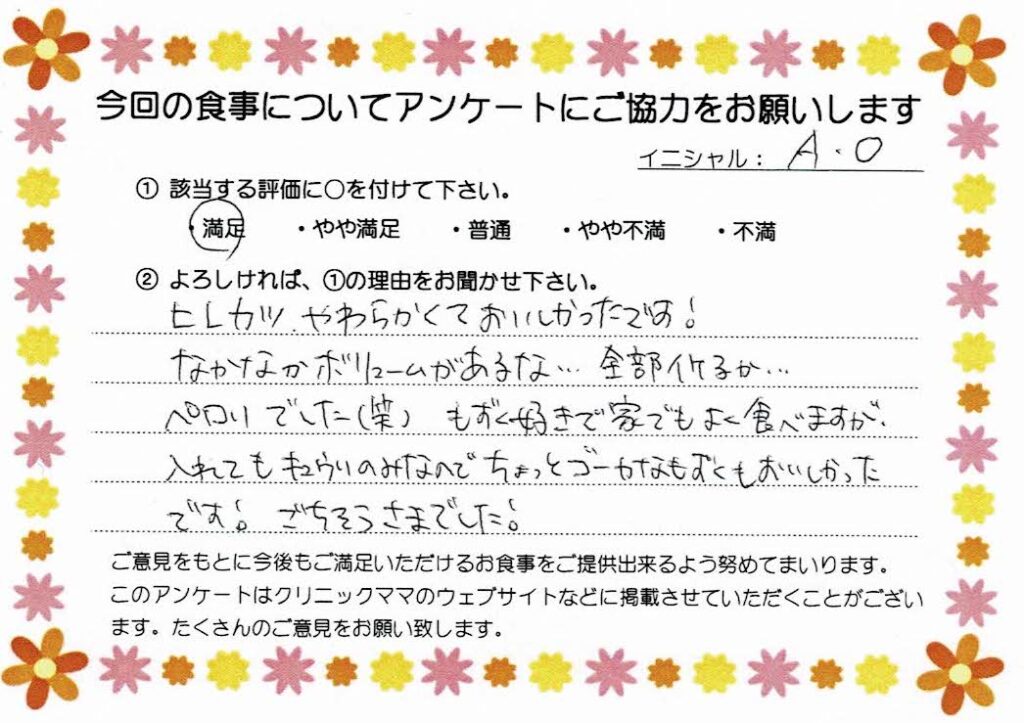 今回の食事についてアンケートにご協力をお願いします
イニシャル： A.O
① 該当する評価に○を付けて下さい。
・満足 ・やや満足 ・普通 ・やや不満 ・不満
② よろしければ、①の理由をお聞かせ下さい。
ヒレカツ、やわらかくておいしかったです!
なかなかボリュームがあるな… 全部イケるか…
ペロリでした(笑) もずく好きで家でもよく食べますが、
入れてもキュウリのみなのでちょっとゴーカなもずくもおいしかった
です! ごちそうさまでした!
ご意見をもとに今後もご満足いただけるお食事をご提供出来るよう努めてまいります。
このアンケートはクリニックママのウェブサイトなどに掲載させていただくことがござい
ます。たくさんのご意見をお願い致します。